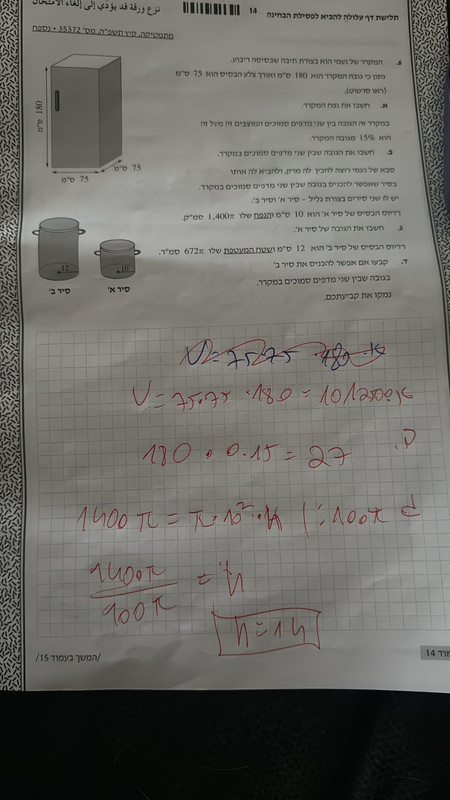 תלישת דף עלולה להביא לפסילת הבחינה
14
نزع ورقة قد يؤدّي إلى إلغاء الامتحان
מתמטיקה, קיץ תשפ"ה, מס' 35372 + נספח
א. המקרר של נעמי הוא בצורת תיבה שבסיסה ריבוע.
נתון כי גובה המקרר הוא 180 ס"מ ואורך צלע הבסיס הוא 75 ס"מ
(ראו סרטוט).
א. חשבו את נפח המקרר.
במקרר זה הגובה בין שני מדפים סמוכים
הוא 15% מגובה המקרר.
ב. חשבו את הגובה שבין שני מדפים סמוכים במקרר.
סבא של נעמי רוצה להכין לה מרק, ולהביא לה אותו
בסיר שאפשר להכניס בגובה שבין שני מדפים סמוכים במקרר.
יש לו שני סירים בצורת גליל – סיר א' וסיר ב'.
רדיוס הבסיס של סיר א' הוא 10 ס"מ והנפח שלו 1,400π סמ"ק.
ג. חשבו את הגובה של סיר א'.
רדיוס הבסיס של סיר ב' הוא 12 ס"מ ושטח המעטפת שלו 672π סמ"ר.
ד. קבעו אם אפשר להכניס את סיר ב'
בגובה שבין שני מדפים סמוכים במקרר.
נמקו את קביעתכם.
180 ס"מ
75 ס"מ
75 ס"מ
12
10
סיר ב'
סיר א'
V=75·75·180 .א
V=75·75·180=1012500 .א
180·0.15=27 .ב
1400π=π·10²·h /:100π ג
1400π/100π = h
h=14
/המשך בעמוד 15/
עמוד 14